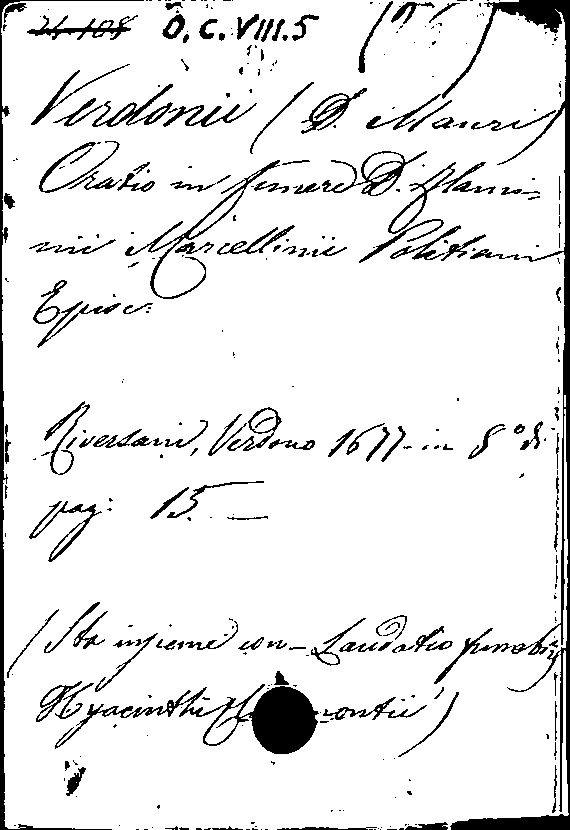 24-108 O.C.VIII.5
Verdonii (D. Mauri)
Oratio in funere D. Flami-
nii Marcellinii Politiani
Episc:
Riversani, Verdono 1677 in 8° di
pag: 15.
(Sta insieme con - Laudatio funebris
Hyacinthi